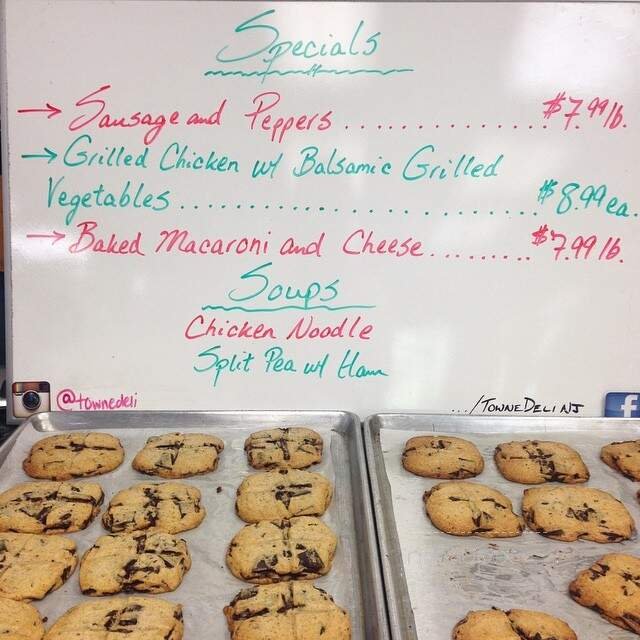 Specials
→ Sausage and Peppers .................. $7.99 lb.
→ Grilled Chicken w/ Balsamic Grilled
Vegetables .............................. $8.99 ea.
→ Baked Macaroni and Cheese ......... $7.99 lb.
Soups
Chicken Noodle
Split Pea w/ Ham
@townedeli
.../TOWNEDELINJ f